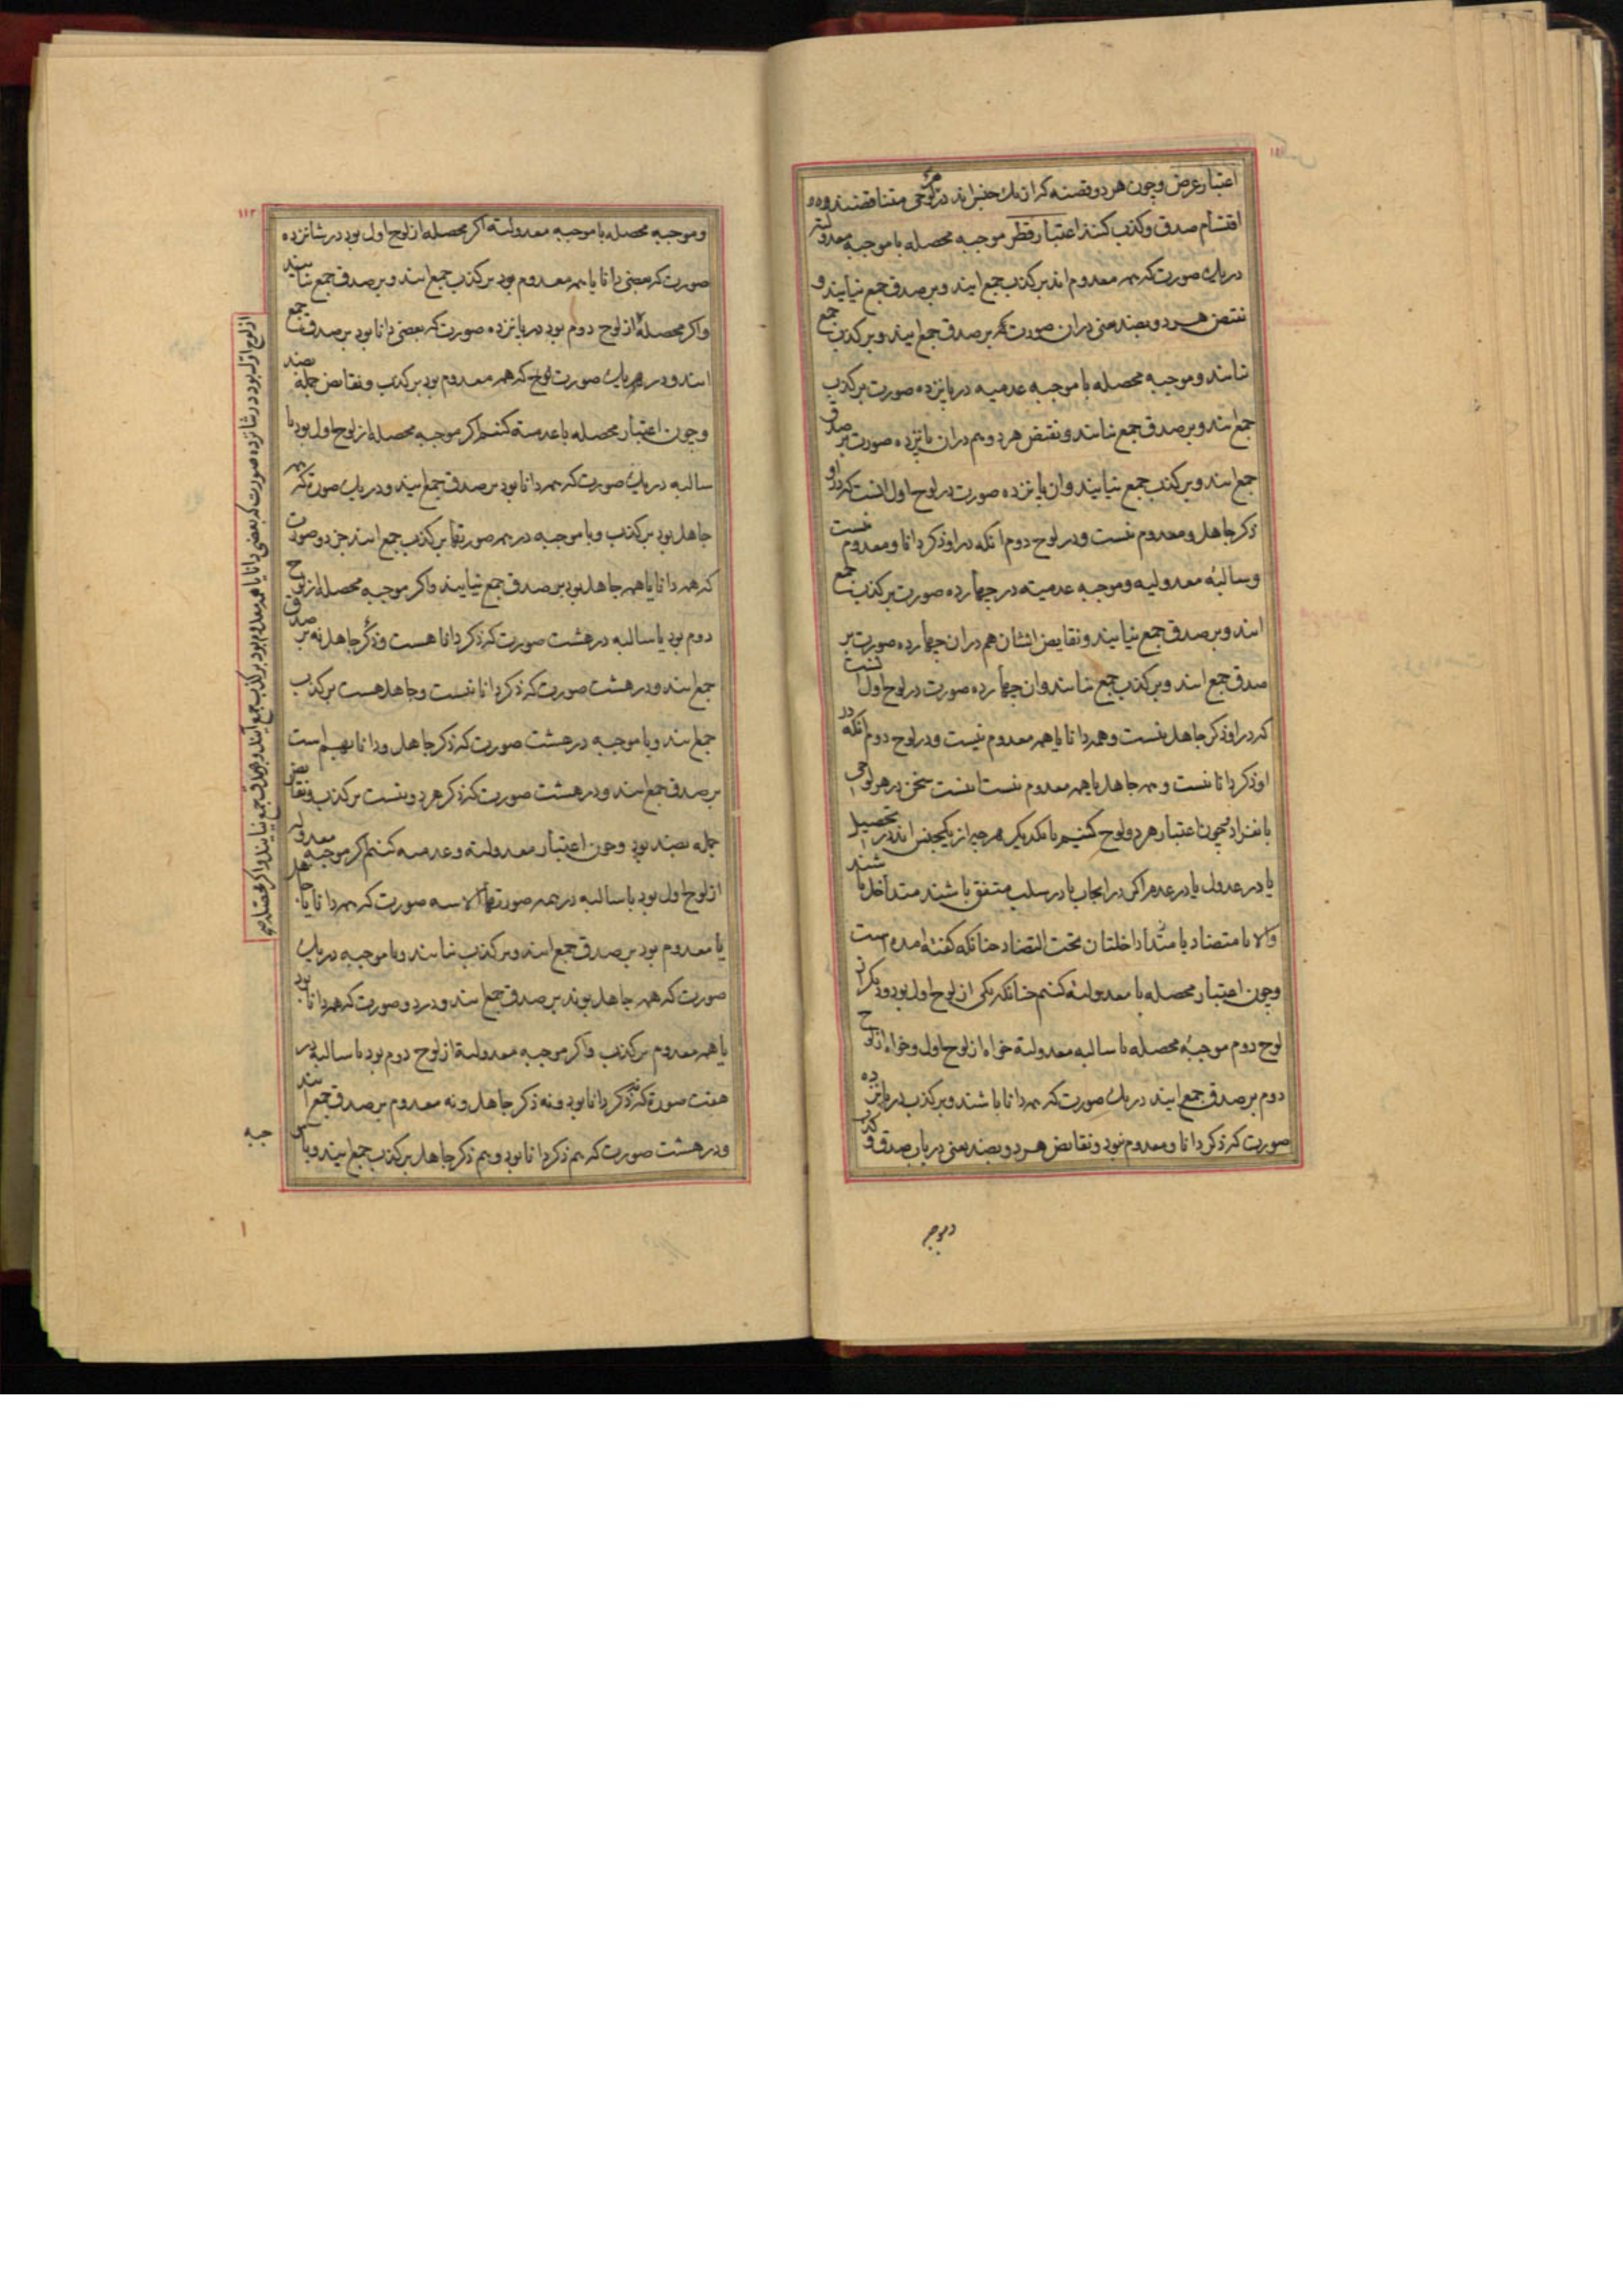 اعتبار عرض و چون هر دو قضیه که از یک جنس اند در هر لوحی متناقضند و در
اقتسام صدق و کذب کنند اعتبار قطر موجبه محصله با موجبه معدولیه
در یک صورت که همه معدوم اند بر کذب جمع ایند و بر صدق جمع نیایند و
نقیض هر دو بضد یعنی در ان صورت که بر صدق جمع ایند و بر کذب جمع
نیایند و موجبه محصله با موجبه عدمیه در پانزده صورت بر کذب
جمع ایند و بر صدق جمع نیایند و نقیض هر دو هم در ان پانزده صورت بر صدق
جمع ایند و بر کذب جمع نیایند و ان پانزده صورت در لوح اول انست که در او
ذکر جاهل و معدوم نیست و در لوح دوم انکه در او ذکر دانا و معدوم نیست
و سالبه معدولیه و موجبه عدمیه در چهارده صورت بر کذب جمع
ایند و بر صدق جمع نیایند و نقایض ایشان هم در ان چهارده صورت بر
صدق جمع ایند و بر کذب جمع نیایند و ان چهارده صورت در لوح اول انست
که در او ذکر جاهل نیست و همه دانا یا همه معدوم نیست و در لوح دوم انکه در
او ذکر دانا نیست و همه جاهل یا همه معدوم نیست اینست سخن در هر لوحی
بانفراد و چون اعتبار هر دو لوح کنیم با یکدیگر هر چه از یکجنس اند در تحصیل
یا در عدول یا در عدم اکر در ایجاب یا در سلب متفق باشند متداخل باشند
والا یا متضاد یا متداخلتان تحت التضاد چنانکه کفته امده است
و چون اعتبار محصله با معدولیه کنیم چنانکه یکی از لوح اول بود و دیکر از
لوح دوم موجبه محصله با سالبه معدولیة خواه از لوح اول و خواه از لوح
دوم بر صدق جمع ایند در یک صورت که همه دانا باشند و بر کذب در پانزده
صورت که ذکر دانا و معدوم نبود و نقایض هر دو بضد یعنی در باب صدق و کذب
وموجبه
١١٢
و موجبه محصله با موجبه معدولیة اکر محصله از لوح اول بود در شانزده
صورت که بعضی دانا یا همه معدوم بود بر کذب جمع ایند و بر صدق جمع نیایند
و اکر محصله از لوح دوم بود در پانزده صورت که بعضی دانا بود بر صدق جمع
ایند و در یک صورت که همه معدوم بود بر کذب و نقایض جمله بضد
و چون اعتبار محصله با عدمیة کنیم اکر موجبه محصله از لوح اول بود با
سالبه در یک صورت که همه دانا بود بر صدق جمع ایند و در یک صورت که همه
جاهل بود بر کذب و با موجبه در همه صورتها بر کذب جمع ایند جز دو صورت
که همه دانا یا همه جاهل بود بر صدق جمع نیایند و اکر موجبه محصله از لوح
دوم بود با سالبه در هشت صورت که ذکر دانا هست و ذکر جاهل نه بر صدق
جمع ایند و در هشت صورت که ذکر دانا نیست و جاهل هست بر کذب
جمع ایند و با موجبه در هشت صورت که ذکر جاهل و دانا بهم است
بر صدق جمع ایند و در هشت صورت که ذکر هر دو نیست بر کذب و نقایض
جمله بضد بود و چون اعتبار معدولیة و عدمیه کنیم اکر موجبه معدولیه
از لوح اول بود با سالبه در همه صورتها الا سه صورت که همه دانا یا جاهل
یا معدوم بود بر صدق جمع ایند و بر کذب نیایند و با موجبه در یک
صورت که همه جاهل بوند بر صدق جمع ایند و در دو صورت که همه دانا بود
یا همه معدوم بر کذب و اکر موجبه معدولیة از لوح دوم بود با سالبه در
هفت صورة که نه ذکر دانا بود و نه ذکر جاهل و نه معدوم بر صدق جمع ایند
و در هشت صورت که هم ذکر دانا بود و هم ذکر جاهل بر کذب جمع ایند و با مو
جبه
از لوح اول بود در شانزده صورت که بعضی دانا یا همه معدوم بود بر کذب جمع آیند و بر صدق جمع نیایند و اکر محصله